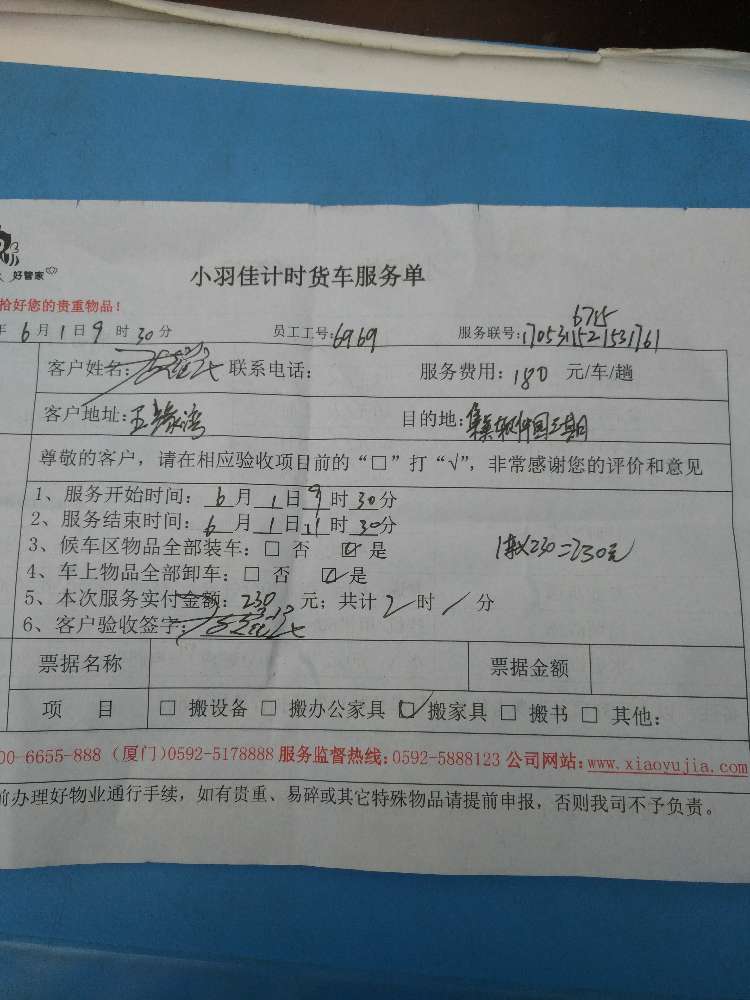 好管家
小羽佳计时货车服务单
拾好您的贵重物品！
年 6 月 1 日 9 时 30 分 员工工号：6969 服务联号：170531521531761
6715
客户姓名： 联系电话： 服务费用：180 元/车/趟
客户地址：玉 湾 目的地：集美软件园三期
尊敬的客户，请在相应验收项目前的“□”打“√”，非常感谢您的评价和意见
1、服务开始时间：6月1日9时30分
2、服务结束时间：6月1日11时30分
3、候车区物品全部装车：□ 否 ☑ 是
1车×230=230元
4、车上物品全部卸车：□ 否 ☑ 是
5、本次服务实付金额：230 元；共计 2 时 / 分
6、客户验收签字：
票据名称 票据金额
项 目 □ 搬设备 □ 搬办公家具 ☑ 搬家具 □ 搬书 □ 其他：
00-6655-888（厦门）0592-5178888 服务监督热线：0592-5888123 公司网站：www.xiaoyujia.com
前办理好物业通行手续，如有贵重、易碎或其它特殊物品请提前申报，否则我司不予负责。